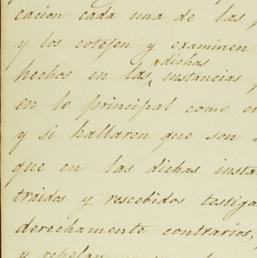 cacion cada una de las
y los cotejen y examinen
dichas
hechos en las instancias
en lo principal como en
y si hallaren que son
que en las dichas insta
traidos y rescebidos testig
derechamente contrarios,
y repelan